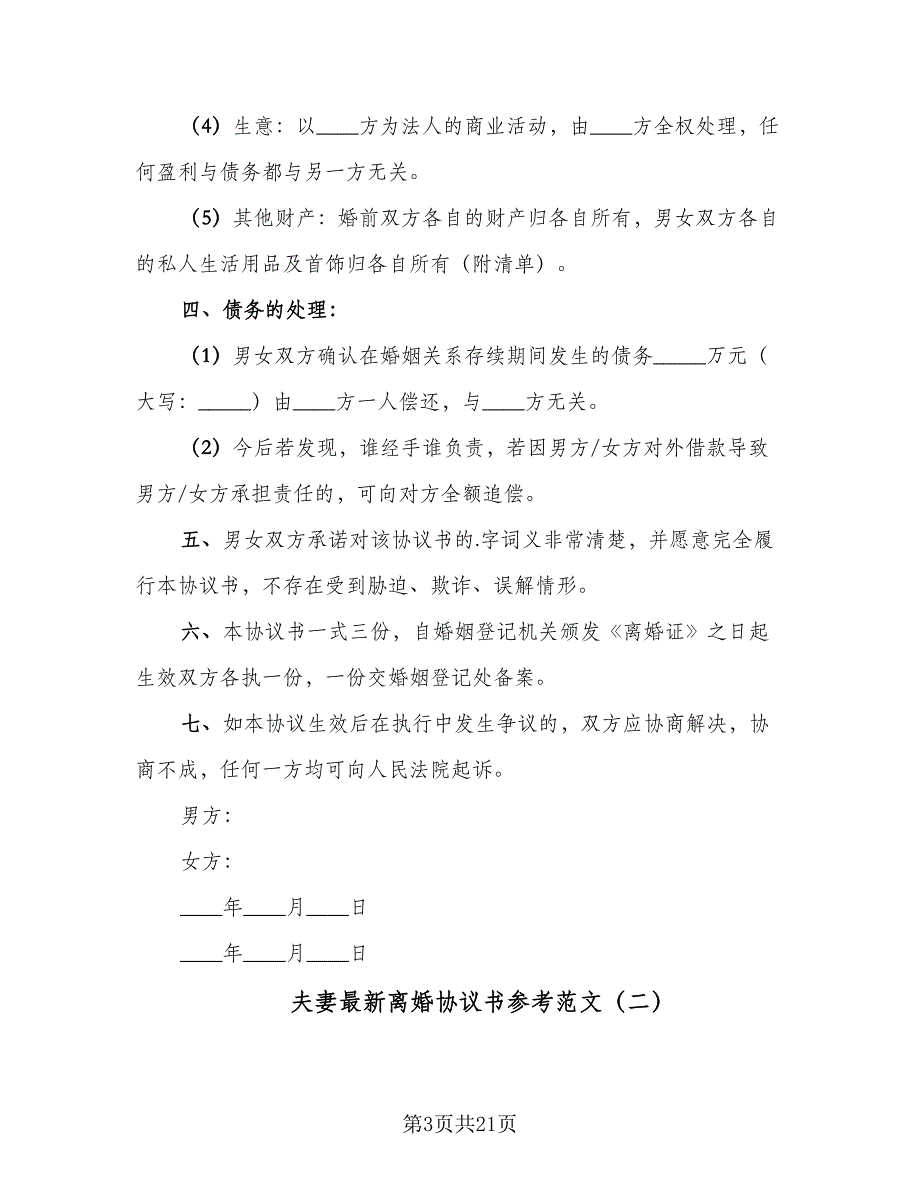 (4) 生意：以____方为法人的商业活动，由____方全权处理，任
何盈利与债务都与另一方无关。
(5) 其他财产：婚前双方各自的财产归各自所有，男女双方各自
的私人生活用品及首饰归各自所有（附清单）。
四、债务的处理：
(1) 男女双方确认在婚姻关系存续期间发生的债务_____万元（
大写：_____）由____方一人偿还，与____方无关。
(2) 今后若发现，谁经手谁负责，若因男方/女方对外借款导致
男方/女方承担责任的，可向对方全额追偿。
五、男女双方承诺对该协议书的.字词义非常清楚，并愿意完全履
行本协议书，不存在受到胁迫、欺诈、误解情形。
六、本协议书一式三份，自婚姻登记机关颁发《离婚证》之日起
生效双方各执一份，一份交婚姻登记处备案。
七、如本协议生效后在执行中发生争议的，双方应协商解决，协
商不成，任何一方均可向人民法院起诉。
男方：
女方：
____年____月____日
____年____月____日
夫妻最新离婚协议书参考范文（二）
第3页共21页